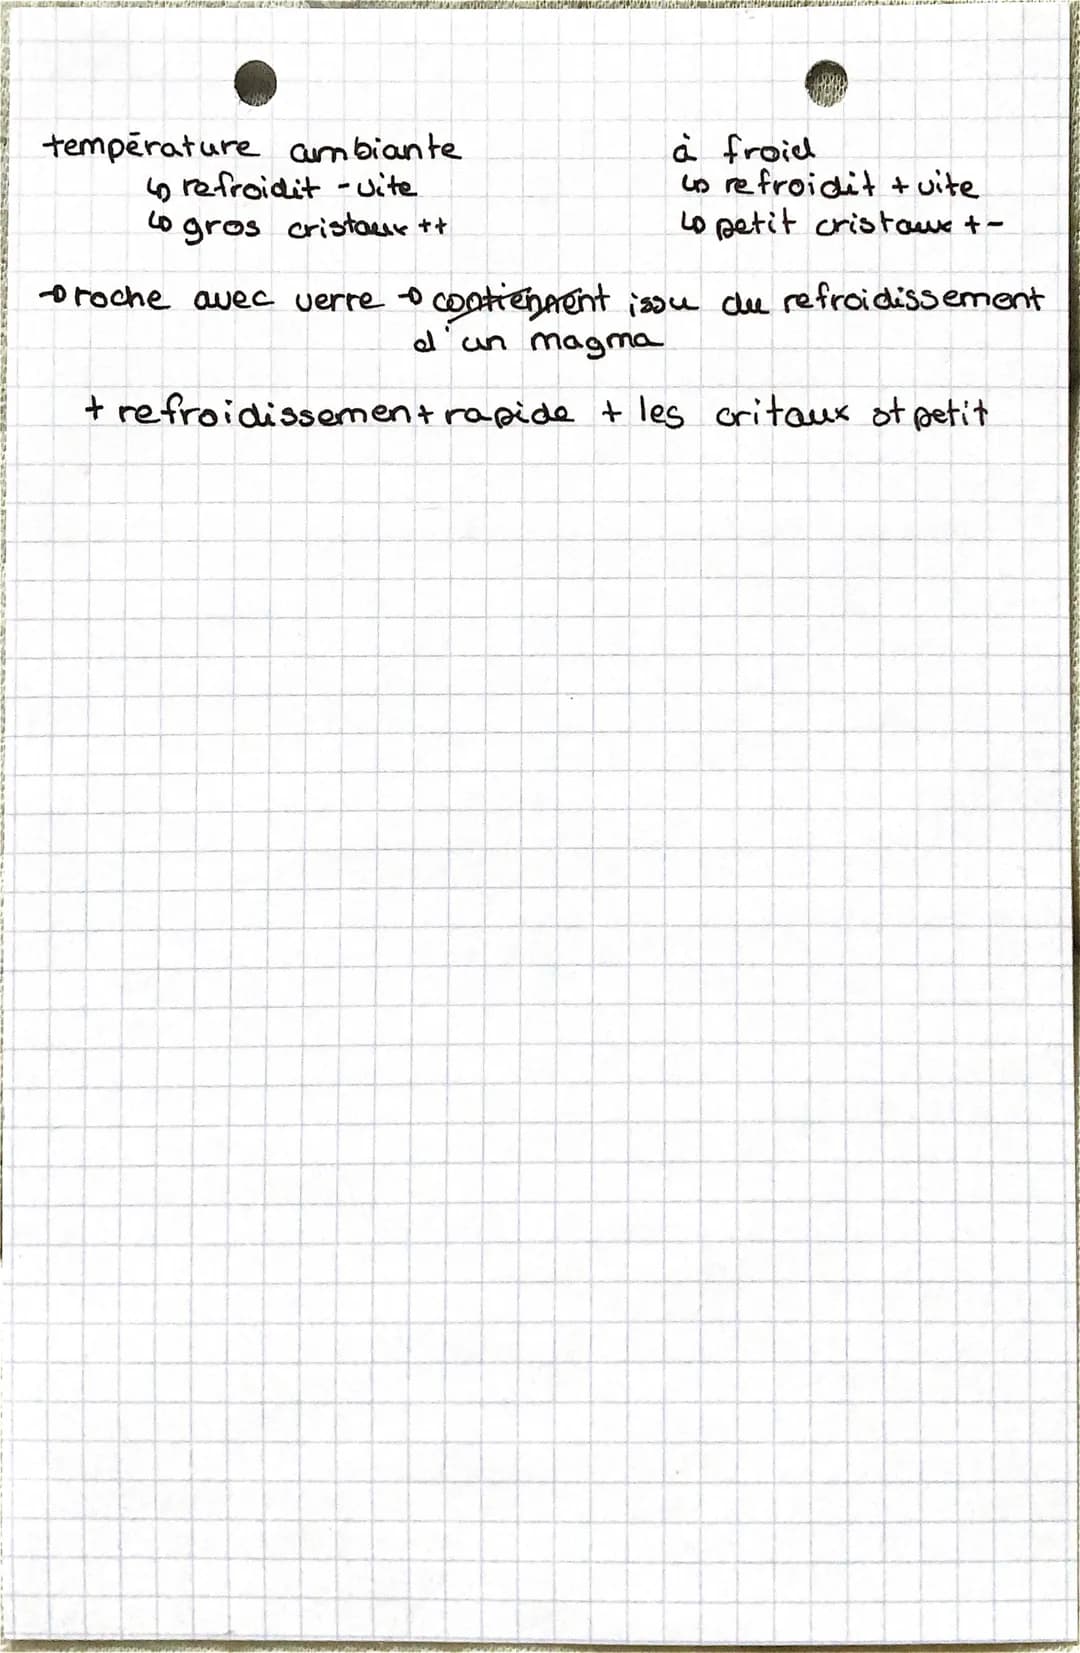 température ambiante
↳ refroidit - vite
↳ gros cristaux ++
à froid
↳ refroidit + vite
↳ petit cristaux +-
→ roche avec verre → contiennent issu du refroidissement
d'un magma
+ refroidissement rapide + les critaux st petit